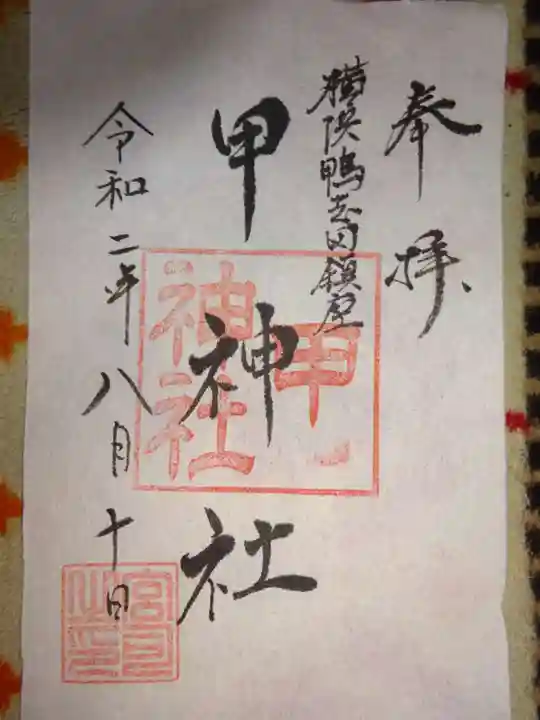 奉拝
横浜鴨志田鎮座
甲神社
令和二年八月十日
甲
神社
宮司
之印